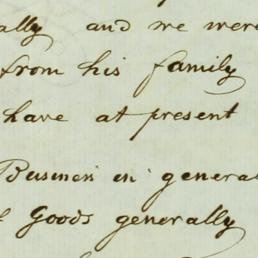 ally and we were
from his family
have at present
Business in general
f Goods generally